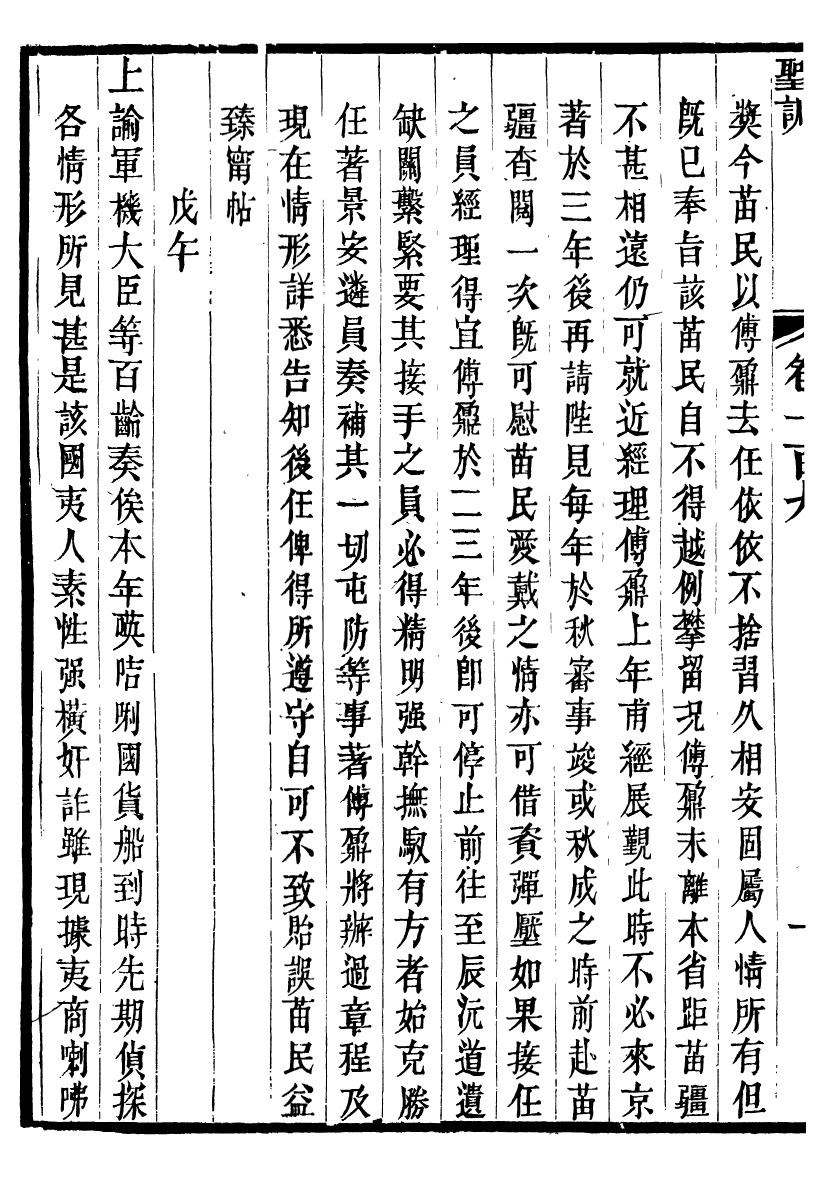 聖訓
卷一百九
一
奬今苗民以傅鼐去任依依不捨習久相安固屬人情所有但
旣已奉旨該苗民自不得越例攀留况傅鼐未離本省距苗疆
不甚相遠仍可就近經理傅鼐上年甫經展覲此時不必來京
著於三年後再請陛見每年於秋審事竣或秋成之時前赴苗
疆查閱一次旣可慰苗民愛戴之情亦可借資彈壓如果接任
之員經理得宜傅鼐於二三年後卽可停止前往至辰沅道遺
缺關繫緊要其接手之員必得精明强幹撫馭有方者始克勝
任著景安遴員奏補其一切屯防等事著傅鼐將辦過章程及
現在情形詳悉告知後任俾得所遵守自可不致貽誤苗民益
臻甯帖
戊午
上諭軍機大臣等百齡奏俟本年暎咭唎國貨船到時先期偵探
各情形所見甚是該國夷人素性强橫奸詐雖現據夷商喇咈